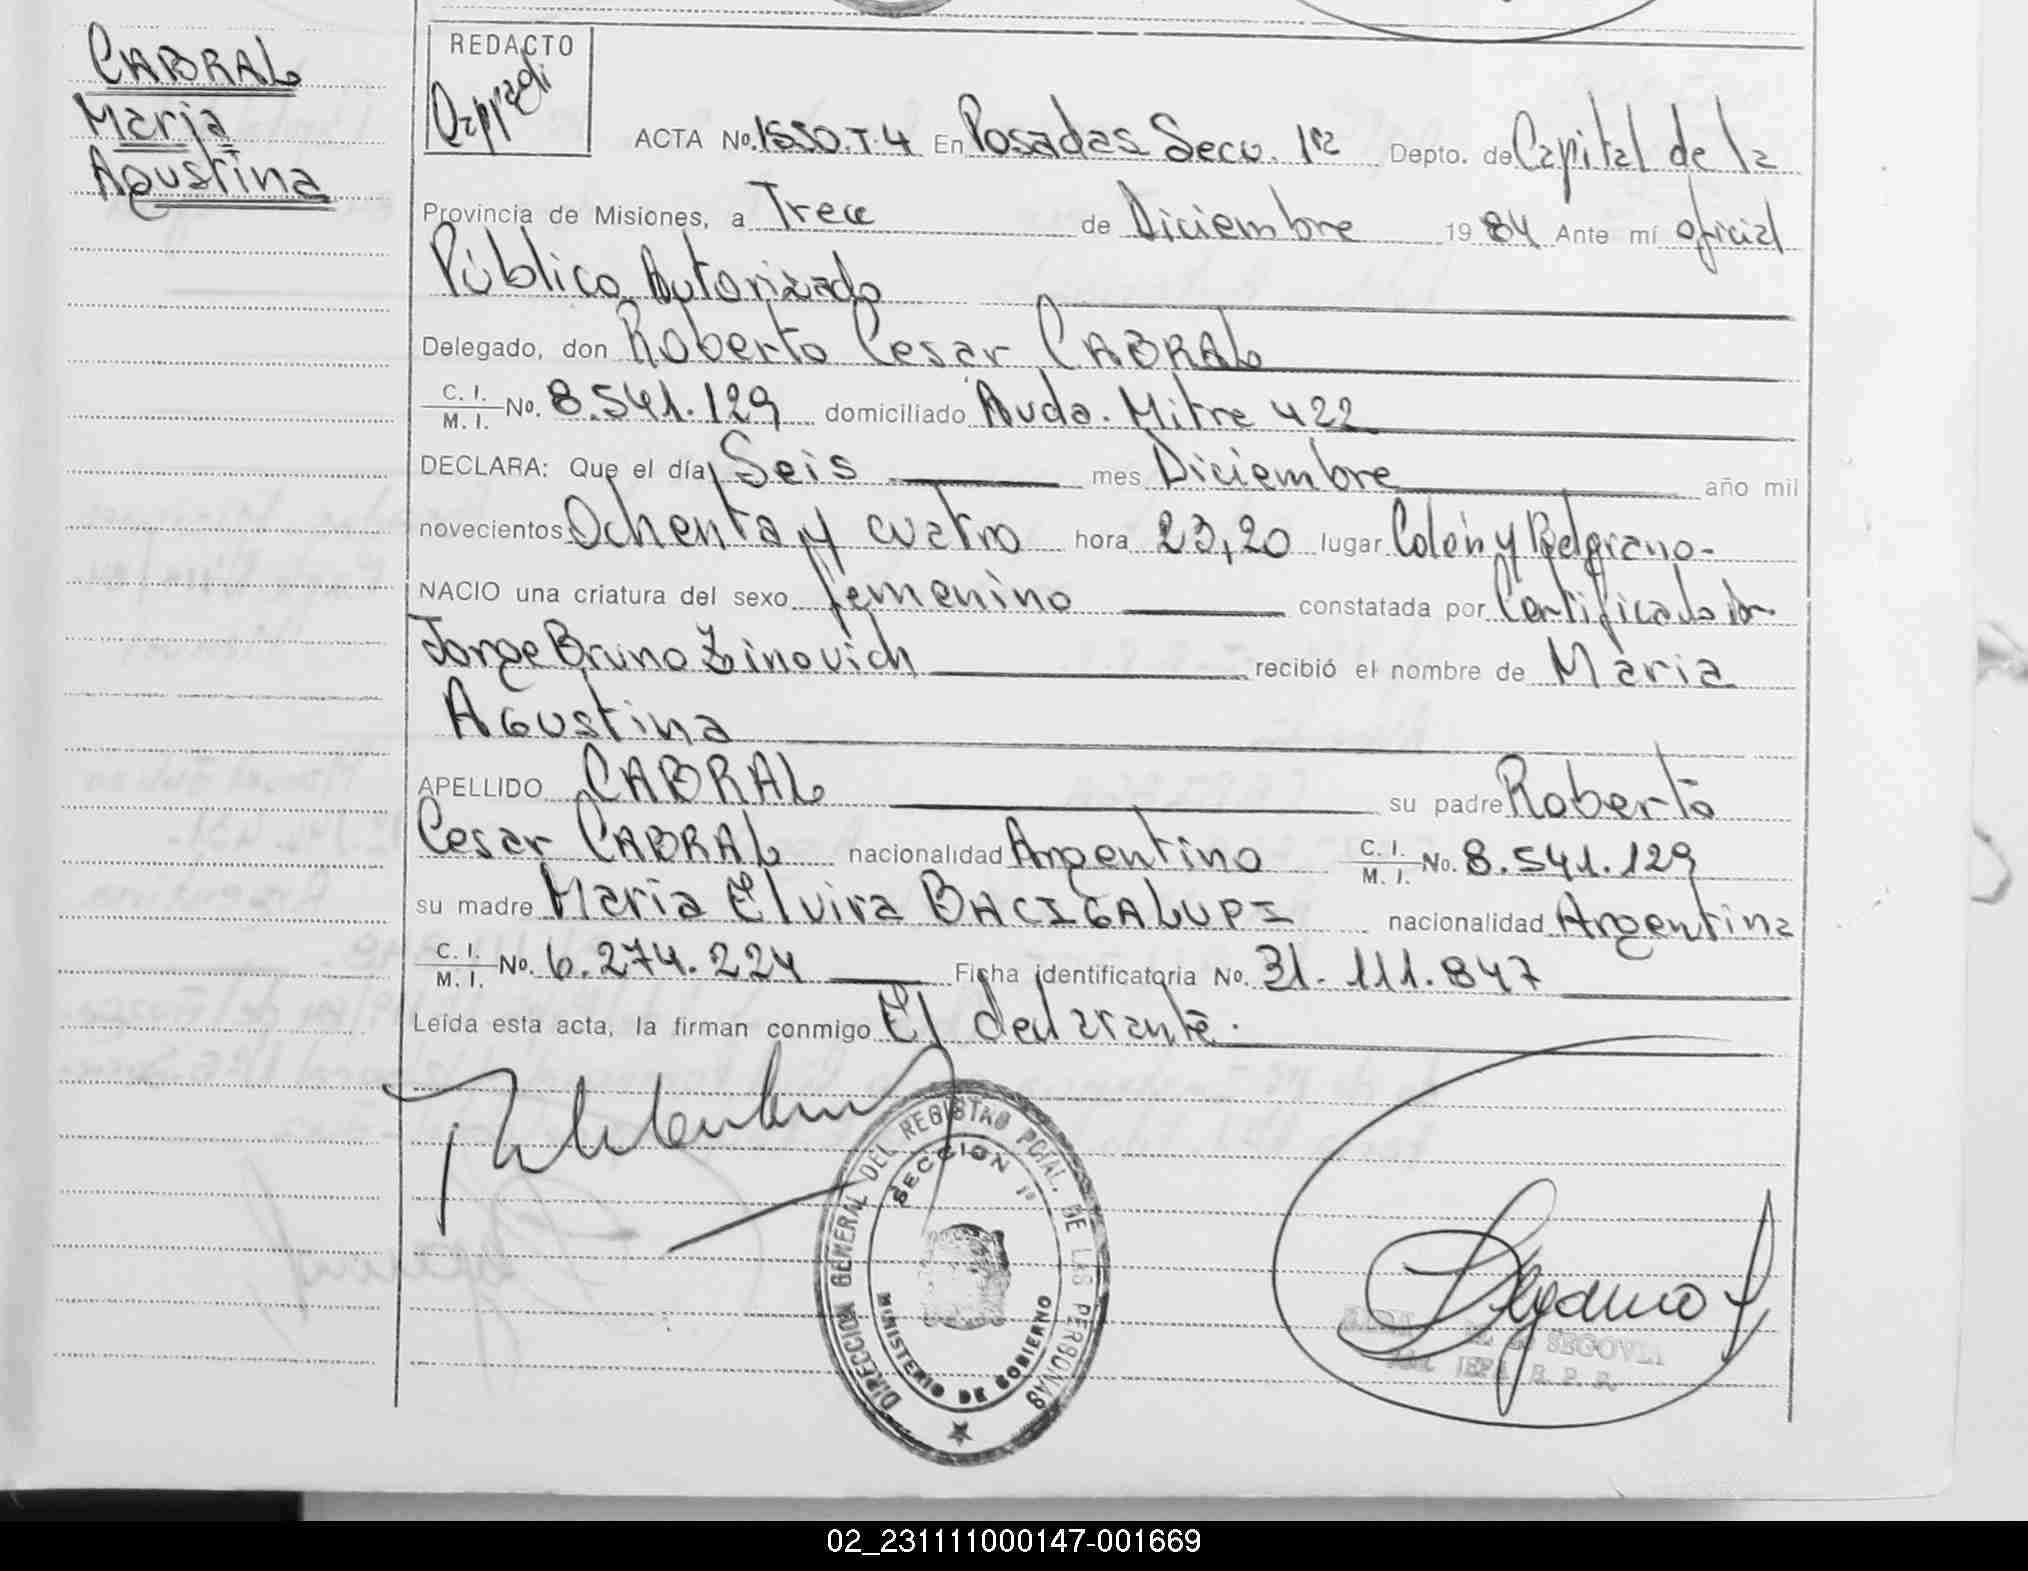 CABRAL
Maria
Agustina
REDACTO
ACTA No. 1550.T.4 En Posadas Secc. 1ra Depto. de Capital de la
Provincia de Misiones, a Trece de Diciembre 1984 Ante mí oficial
Público Autorizado
Delegado, don Roberto Cesar CABRAL
C. I.
M. I. No. 8.541.129 domiciliado Avda. Mitre 422
DECLARA: Que el día Seis mes Diciembre año mil
novecientos Ochenta y cuatro hora 23,20 lugar Colón y Belgrano-
NACIO una criatura del sexo femenino constatada por Certificado Dr.
Jorge Bruno Zinovich recibió el nombre de Maria
Agustina
APELLIDO CABRAL su padre Roberto
Cesar CABRAL nacionalidad Argentino C. I. M. I. No. 8.541.129
su madre Maria Elvira BACIGALUPI nacionalidad Argentina
C. I.
M. I. No. 6.274.224 Ficha identificatoria No. 31.111.847
Leída esta acta, la firman conmigo El declarante.
DIRECCION GENERAL DEL REGISTRO PCIAL. DE LAS PERSONAS
SECCION 1º
MINISTERIO DE GOBIERNO
DE SEGOVIA
JEFA R. P. P.
02_231111000147-001669